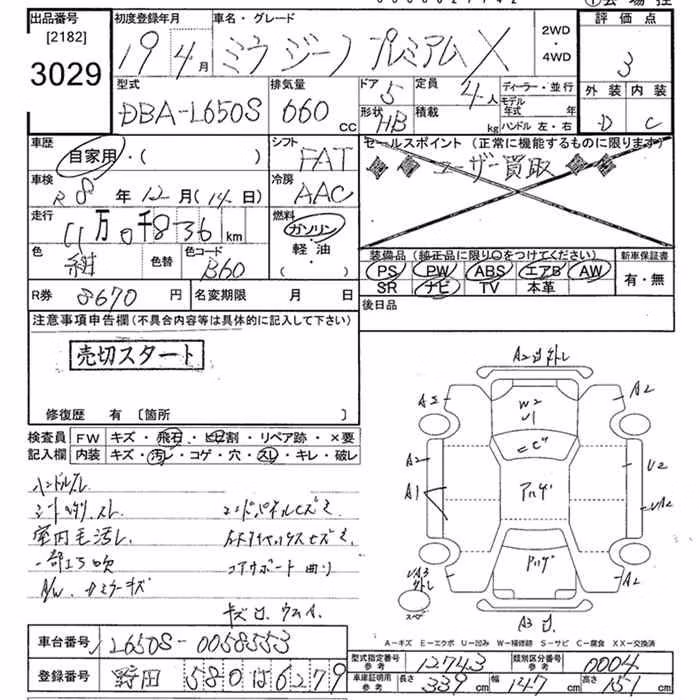 出品番号 初度登録年月 車名・グレード 2WD ・ 4WD 評価点
[2182]
3029 19年4月 ミラジーノ プレミアムX 3
型式 排気量 ドア 5 定員 4人 ディーラー・並行 外装 内装
DBA-L650S 660cc 形状 HB 積載 kg モデル年式 年 D C
ハンドル 左・右
車歴 シフト セールスポイント (正常に機能するものに限ります)
自家用・( ) FAT ユーザー買取
車検 冷房
R8年12月(14日) AAC
走行 燃料
11万0千836km ガソリン
色 紺 色替 色コード B60 軽油 ・( )
装備品 (純正品に限り○をつけてください) 新車保証書
PS PW ABS エアB AW 有・無
SR ナビ TV 本革
R券 8670円 名変期限 月 日 後日品
注意事項申告欄 (不具合内容等は具体的に記入して下さい)
売切スタート
修復歴 有 [箇所 ]
検査員 FW キズ・飛石・ヒビ割・リペア跡・×要
記入欄 内装 キズ・汚レ・コゲ・穴・スレ・キレ・破レ
ハンドルスレ
エンドパネルキズミ
室内毛汚レ
コアサポート曲り
A/W
A2
A2
W2
U1
A2
U2
A1
UA2
UA3
A2
A3
スペア
A-キズ E-エクボ U-凹み W-補修跡 S-サビ C-腐食 XX-交換済
車台番号 L650S-0058553
型式指定番号 参考 12743 類別区分番号 参考 0004
登録番号 野田 580 は 6279
車庫証明用 参考 長さ 339cm 幅 147cm 高さ 151cm